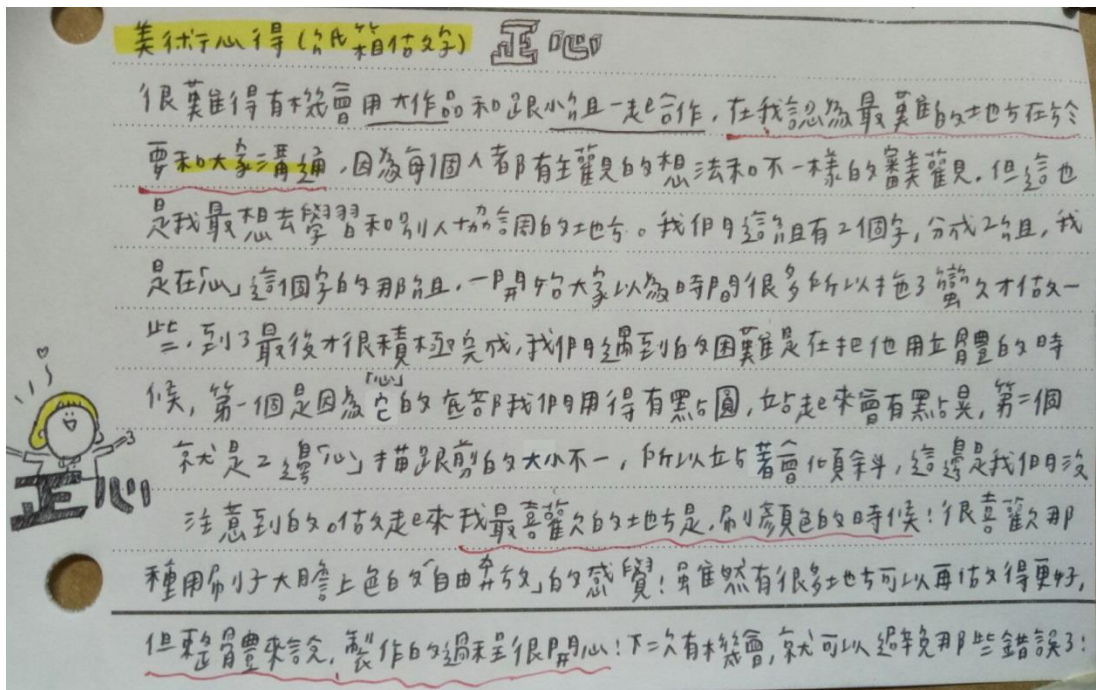 美術心得(紙箱做字) 正心
很難得有機會用大作品和跟小組一起合作,在我認為最難的地方在於
要和大家溝通,因為每個人都有主觀的想法和不一樣的審美觀,但這也
是我最想去學習和別人協調的地方。我們這組有2個字,分成2組,我
是在「心」這個字的那組,一開始大家以為時間很多所以拖了蠻久才做一
些,到了最後才很積極完成,我們遇到的困難是在把他用立體的時
候,第一個是因為它「心」的底部我們用得有點圓,站起來會有點晃,第二個
就是2邊「心」描跟剪的大小不一,所以站著會傾斜,這邊是我們沒
注意到的。做起來我最喜歡的地方是,刷顏色的時候!很喜歡那
正心
種用刷子大膽上色的「自由奔放」的感覺!雖然有很多地方可以再做得更好,
但整體來說,製作的過程很開心!下次有機會,就可以避免那些錯誤了!